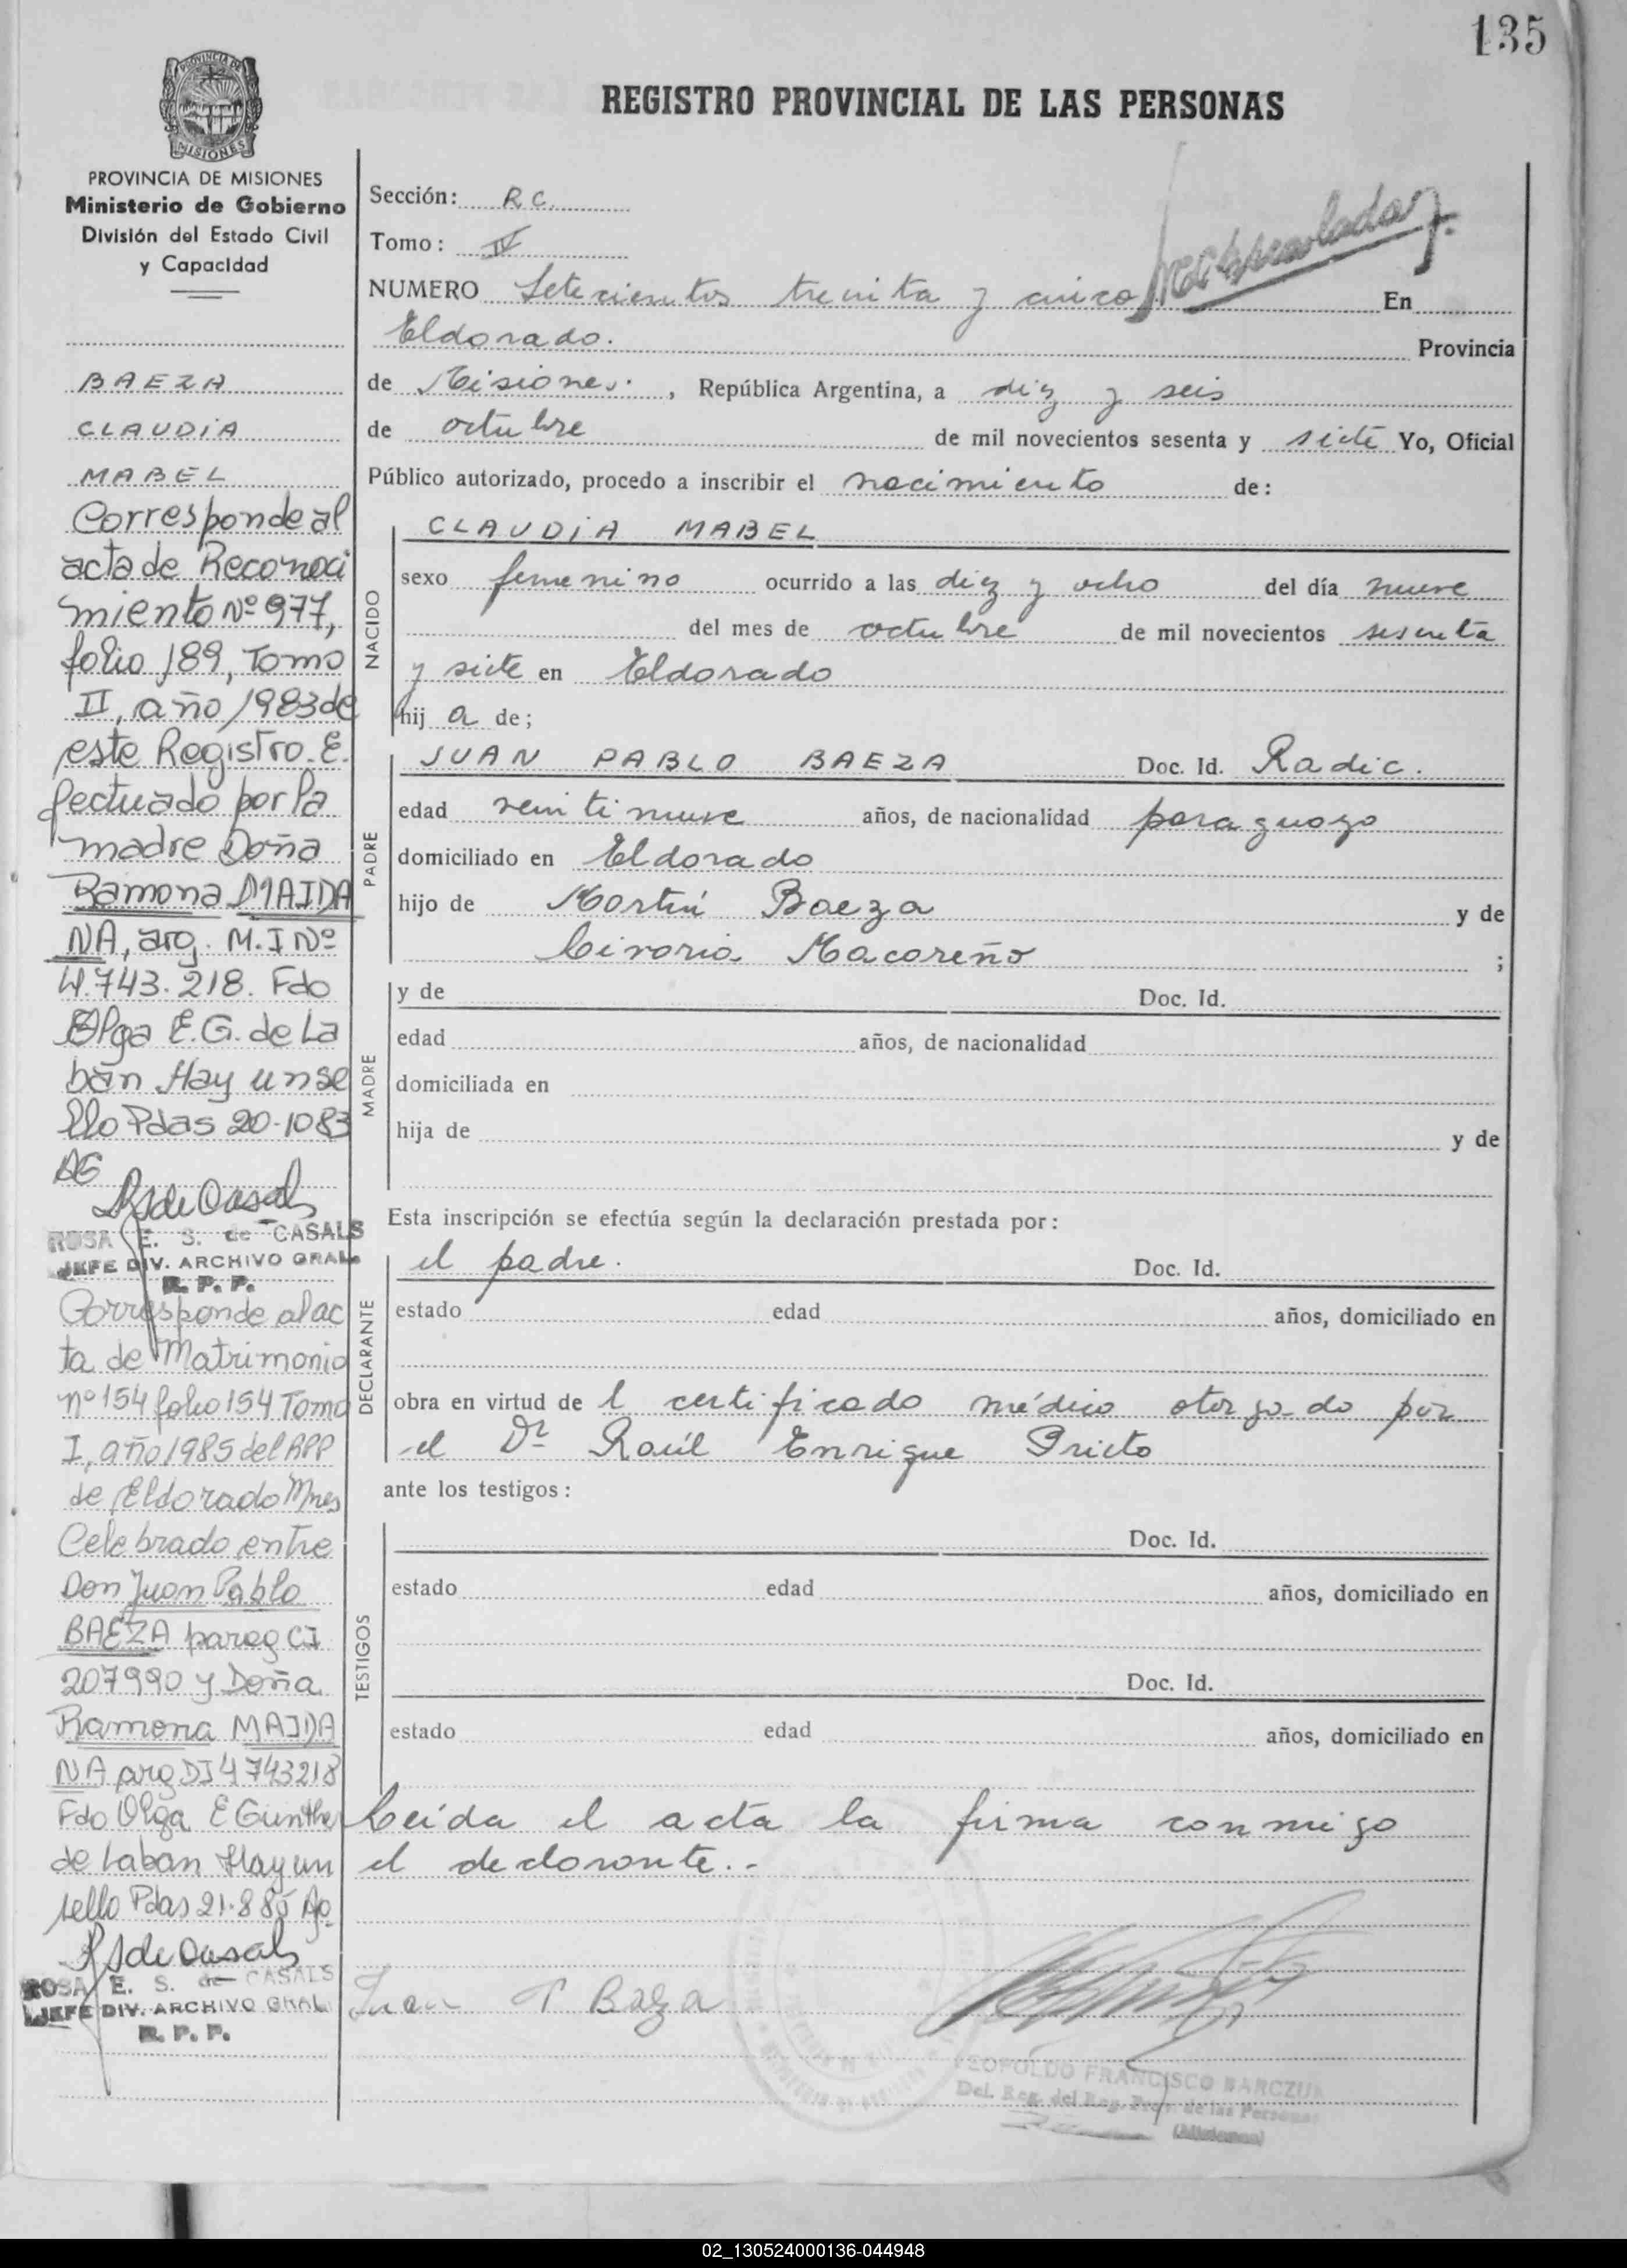 135
REGISTRO PROVINCIAL DE LAS PERSONAS
PROVINCIA DE MISIONES
PROVINCIA DE MISIONES
Ministerio de Gobierno
División del Estado Civil
y Capacidad
BAEZA
CLAUDIA
MABEL
Corresponde al
acta de Reconoci
miento Nº 977,
folio 189, Tomo
II, año 1983 de
este Registro. E
fectuado por la
madre Doña
Ramona MAIDA
NA, arg. M.I Nº
4.743.218. Fdo
Olga E.G. de La
ban Hay un se
llo Pdas 20-10 83
AG
ROSA E. S. de CASALS
JEFE DIV. ARCHIVO GRAL.
R. P. P.
Corresponde al ac
ta de Matrimonio
nº 154 folio 154 Tomo
I, año 1985 del RPP
de Eldorado Mnes
Celebrado entre
Don Juan Pablo
BAEZA parag CI
207990 y Doña
Ramona MAIDA
NA arg DI 4743218
Fdo Olga E Gunther
de Laban Hay un
sello Pdas 21-8 85 Ag
ROSA E. S. de CASALS
JEFE DIV. ARCHIVO GRAL
R. P. P.
Sección: RC
Tomo: IV
NUMERO Setecientos treinta y cinco En
Eldorado. Provincia
de Misiones. , República Argentina, a diez y seis
de octubre de mil novecientos sesenta y siete Yo, Oficial
Público autorizado, procedo a inscribir el nacimiento de:
NACIDO
CLAUDIA MABEL
sexo femenino ocurrido a las diez y ocho del día nueve
del mes de octubre de mil novecientos sesenta
y siete en Eldorado
hij a de;
PADRE
JUAN PABLO BAEZA Doc. Id. Radic.
edad veintinueve años, de nacionalidad paraguayo
domiciliado en Eldorado
hijo de Martín Baeza y de
Macoreño ;
MADRE
y de Doc. Id.
edad años, de nacionalidad
domiciliada en
hija de y de
Esta inscripción se efectúa según la declaración prestada por:
DECLARANTE
el padre. Doc. Id.
estado edad años, domiciliado en
obra en virtud de l certificado médico otorgado por
el Dr Raúl Enrique Prieto
ante los testigos:
TESTIGOS
Doc. Id.
estado edad años, domiciliado en
Doc. Id.
estado edad años, domiciliado en
Leída el acta la firma conmigo
el declarante.-
Juan P Baeza
LEOPOLDO FRANCISCO
Del. Reg. del Reg. Prov. de las Personas
(Misiones)
02_130524000136-044948